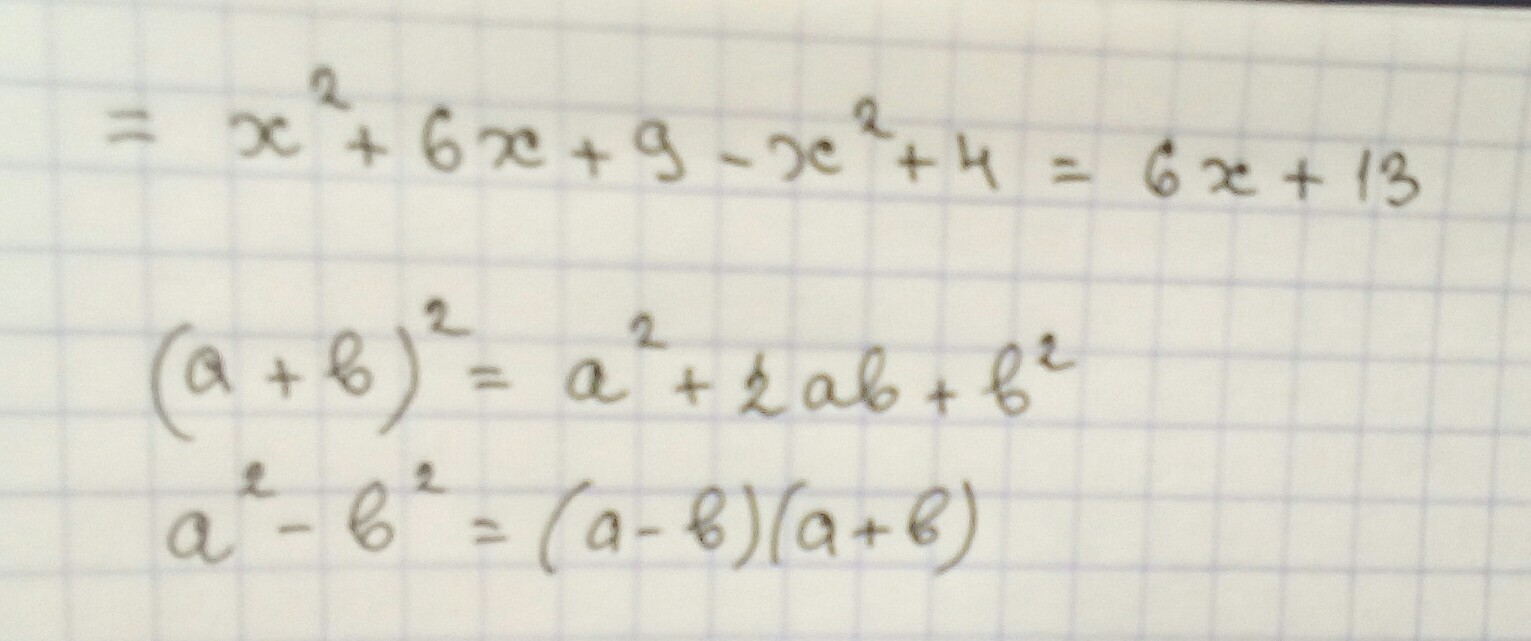 = x² + 6x + 9 - x² + 4 = 6x + 13
(a + b)² = a² + 2ab + b²
a² - b² = (a - b)(a + b)